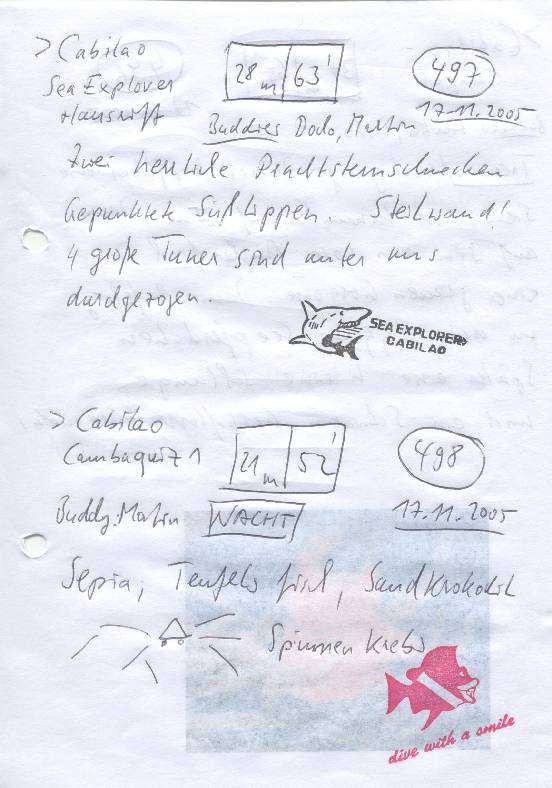 > Cabilao
Sea Explorer
Hausriff
28m 63'
497
17.11.2005
Buddies Dodo, Martin
Zwei herrliche Prachtsternschnecken
Gepunktete Süßlippen. Steilwand!
4 große Tuner sind unter uns
durchgezogen.
SEA EXPLORERS
CABILAO
> Cabilao
Cambaquiz 1
21m 52'
498
Buddy: Martin NACHT
17.11.2005
Sepia, Teufelsfisch, Sandkrokodil
Spinnen Krebs
dive with a smile